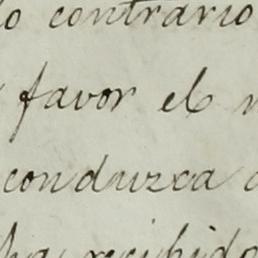 lo contrario
favor el
conduzca
ha recibido